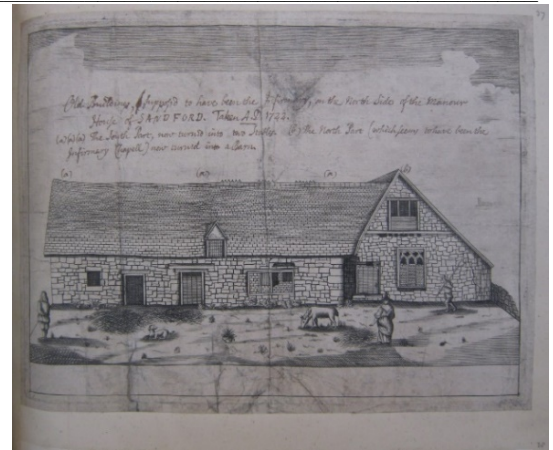 Old Buildings, supposed to have been the Infirmary, on the North Side of the Mannour
House of SANDFORD. Taken AD. 1744.
(a)(a)(a) The South Part, now turn'd into two Stables (b) the North Part (which seems to have been the
Infirmary Chapell) now turned into a Barn.
(a) (a) (a) (b)